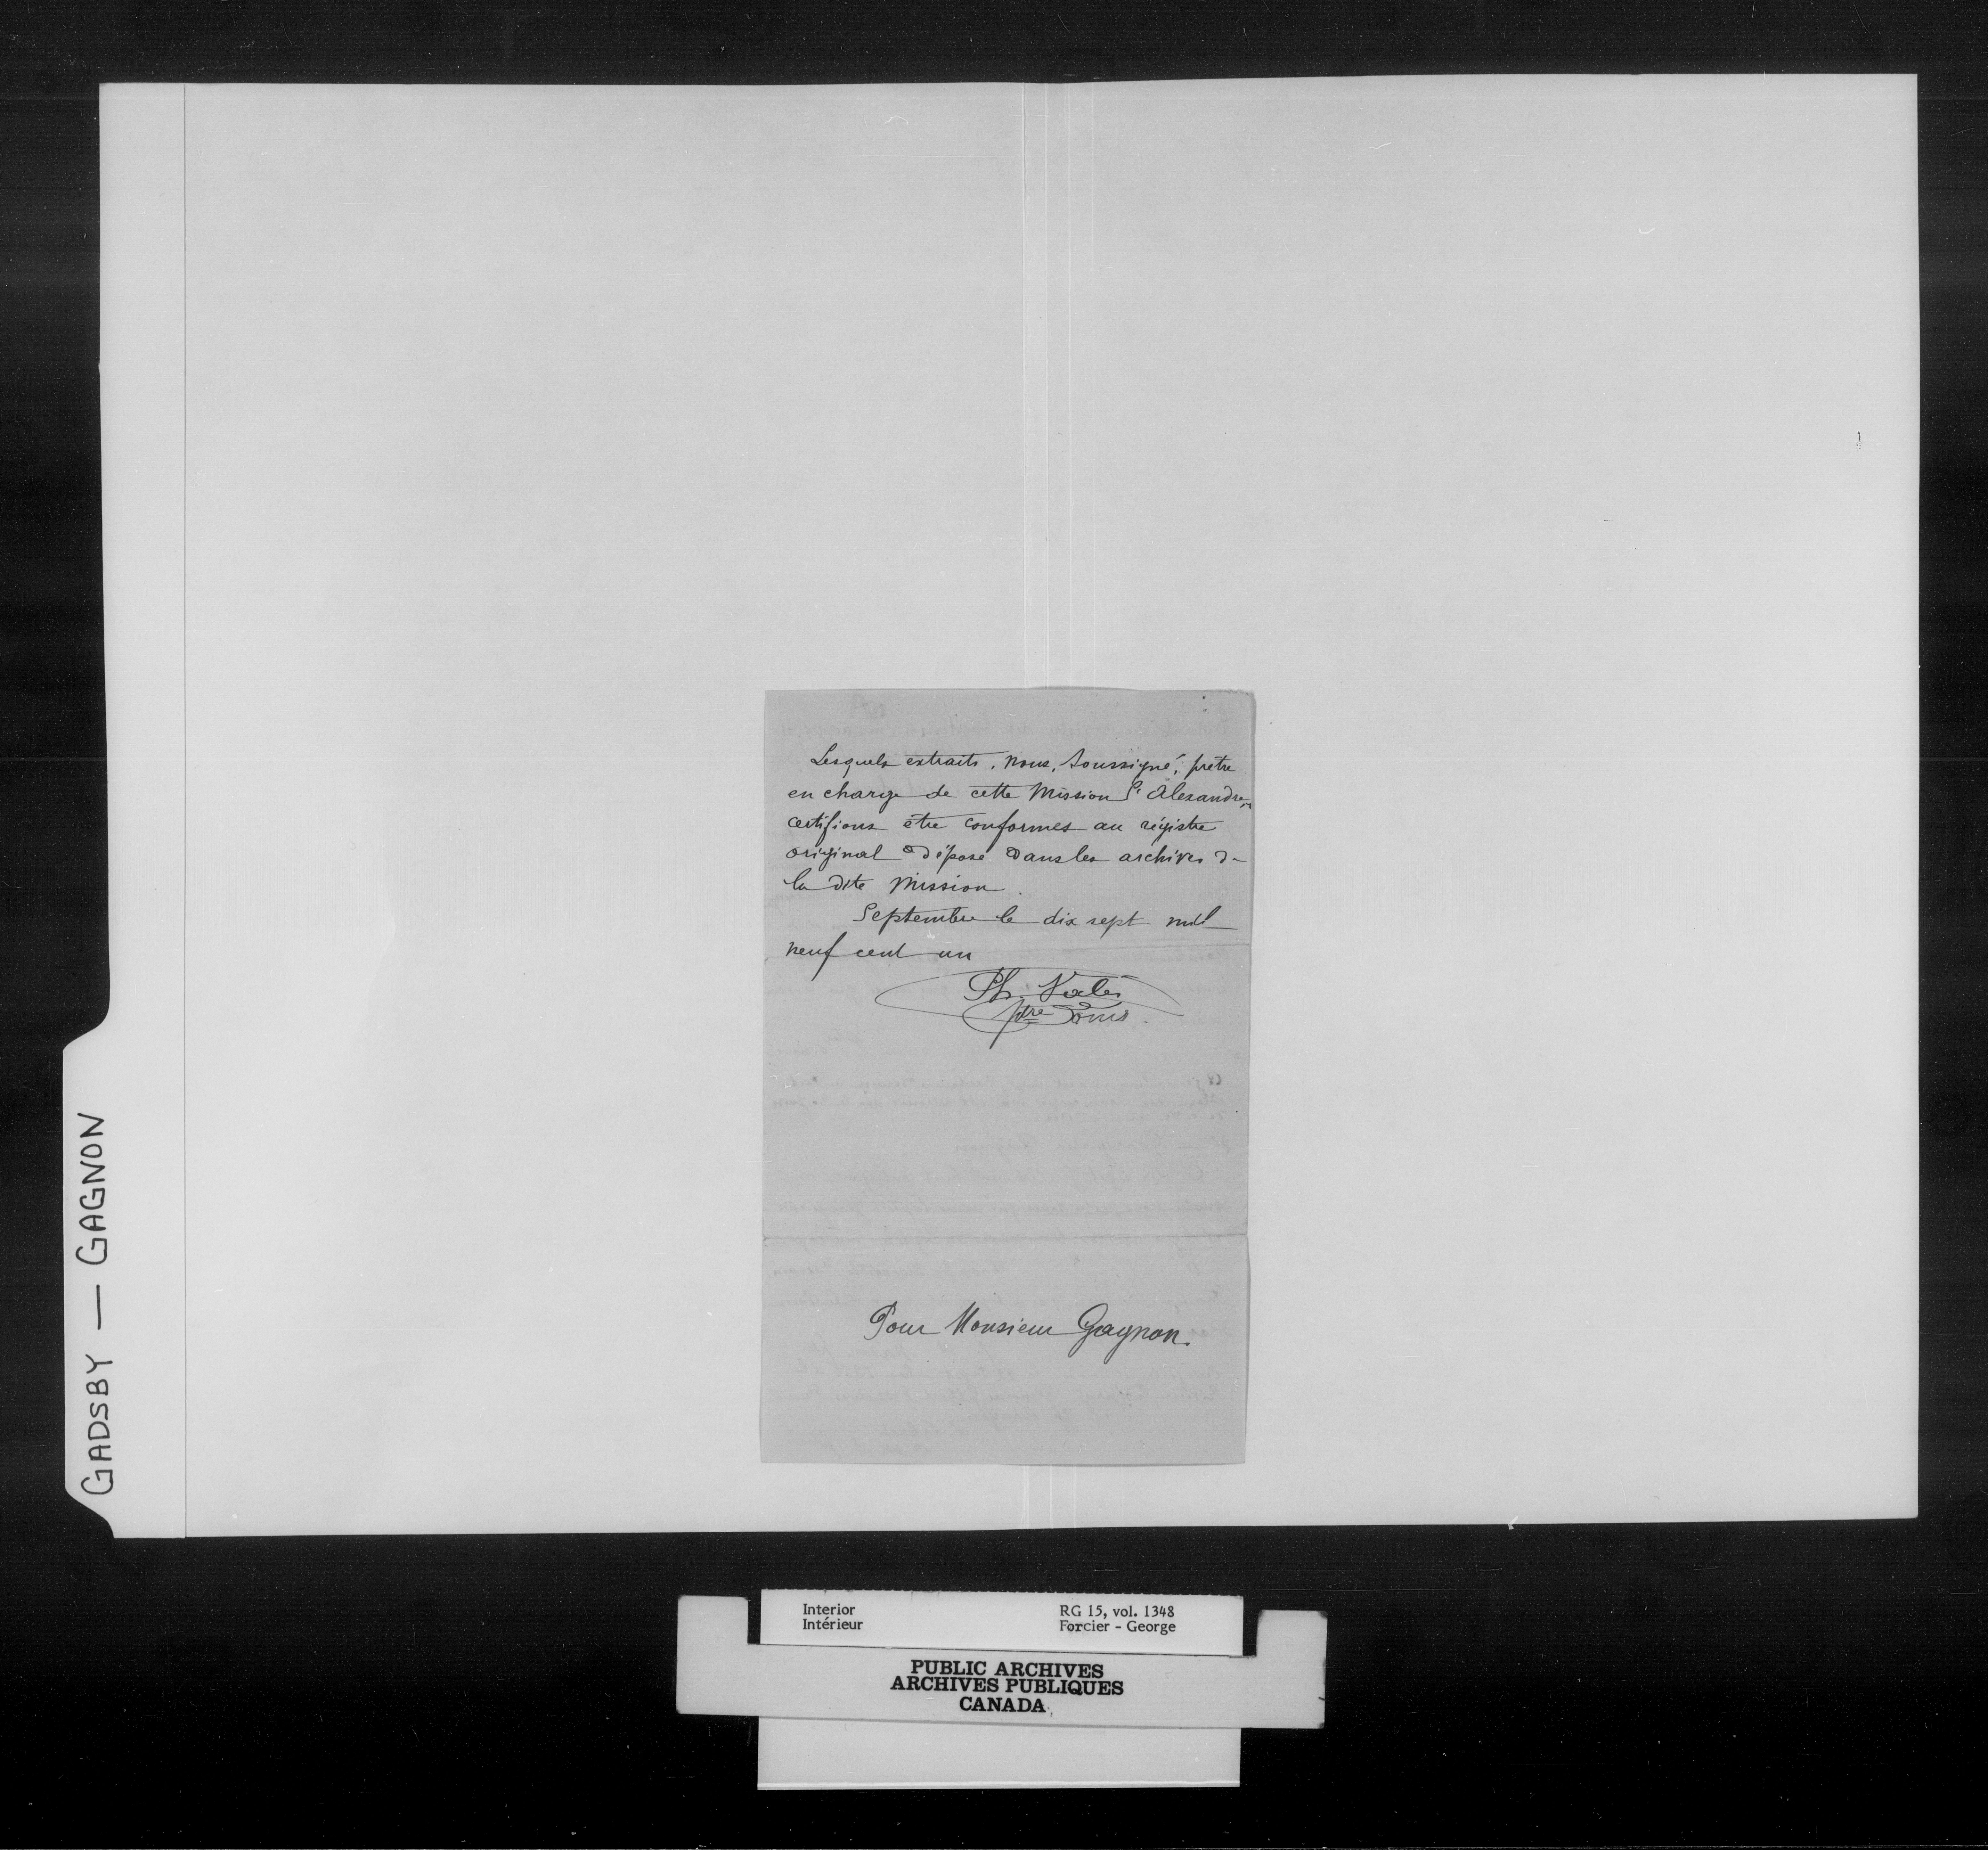 Lesquels extraits, nous, soussigné, prêtre
en charge de cette Mission St Alexandre,
certifions être conformes au régistre
original déposé dans les archives de
la dite Mission.
Septembre le dix sept mil
neuf cent un
Ph.
ptre
Pour Monsieur Gagnon.
GADSBY — GAGNON
Interior
Intérieur
RG 15, vol. 1348
Forcier - George
PUBLIC ARCHIVES
ARCHIVES PUBLIQUES
CANADA